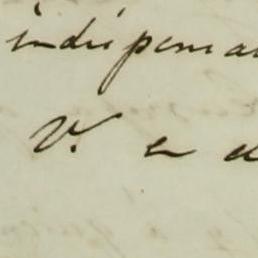 indispensa
V. en d